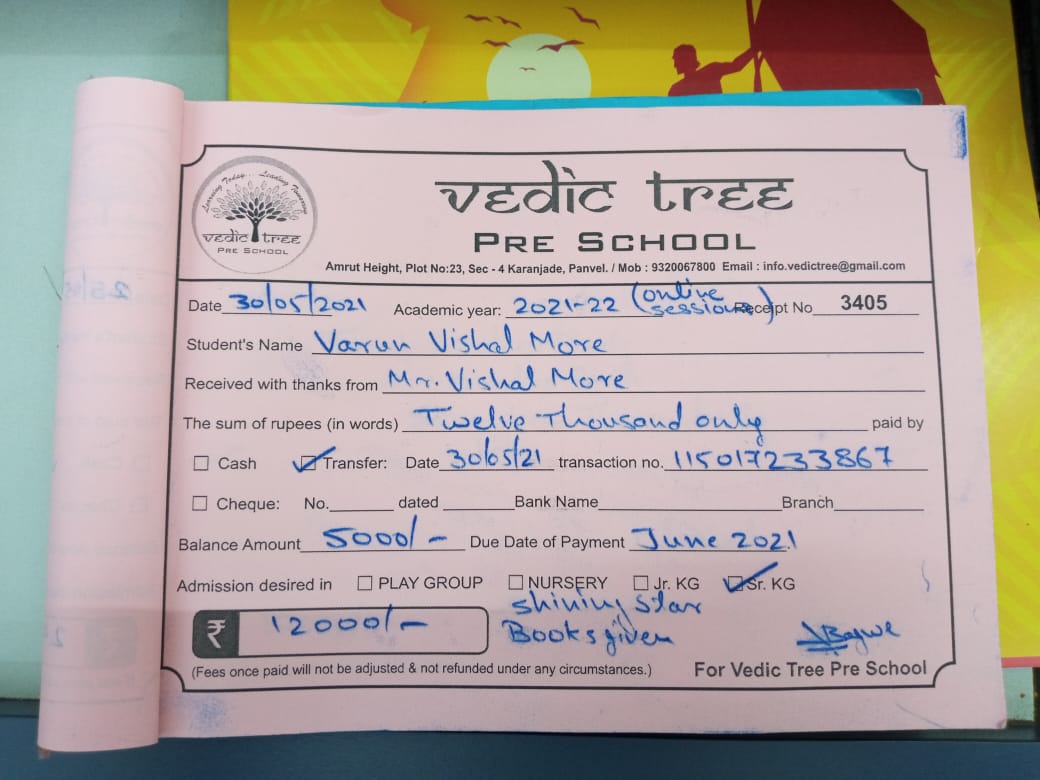 Learning Today... Leading Tomorrow
vedic tree
PRE SCHOOL
vedic tree
PRE SCHOOL
Amrut Height, Plot No:23, Sec - 4 Karanjade, Panvel. / Mob : 9320067800 Email : info.vedictree@gmail.com
Date 30/05/2021 Academic year: 2021-22 (online sessions) Receipt No 3405
Student's Name Varun Vishal More
Received with thanks from Mr. Vishal More
The sum of rupees (in words) Twelve Thousand only paid by
☐ Cash ☑ Transfer: Date 30/05/21 transaction no. 115017233867
☐ Cheque: No. dated Bank Name Branch
Balance Amount 5000/- Due Date of Payment June 2021
Admission desired in ☐ PLAY GROUP ☐ NURSERY ☐ Jr. KG ☑ Sr. KG
₹ 12000/- Shining Star
Books given
(Fees once paid will not be adjusted & not refunded under any circumstances.) For Vedic Tree Pre School